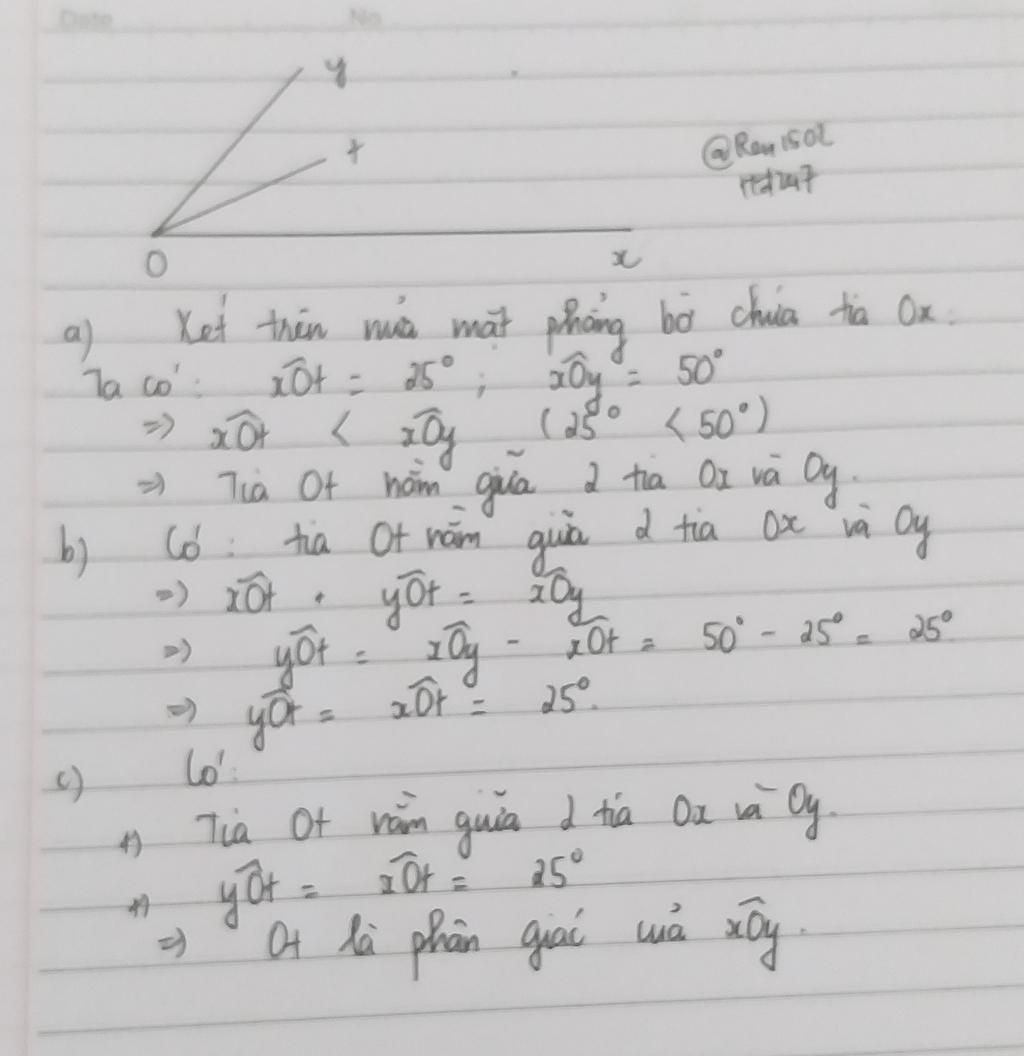 Date No
y
t
@Ren1502
O
x
a) Xét trên nửa mặt phẳng bờ chứa tia Ox:
Ta có: xÔt = 25° ; xÔy = 50°
=> xÔt < xÔy (25° < 50°)
=> Tia Ot nằm giữa 2 tia Ox và Oy.
b) Có: tia Ot nằm giữa 2 tia Ox và Oy
=> xÔt + yÔt = xÔy
=> yÔt = xÔy - xÔt = 50° - 25° = 25°
=> yÔt = xÔt = 25°.
c) Có:
+) Tia Ot nằm giữa 2 tia Ox và Oy.
+) yÔt = xÔt = 25°
=> Ot là phân giác của xÔy.